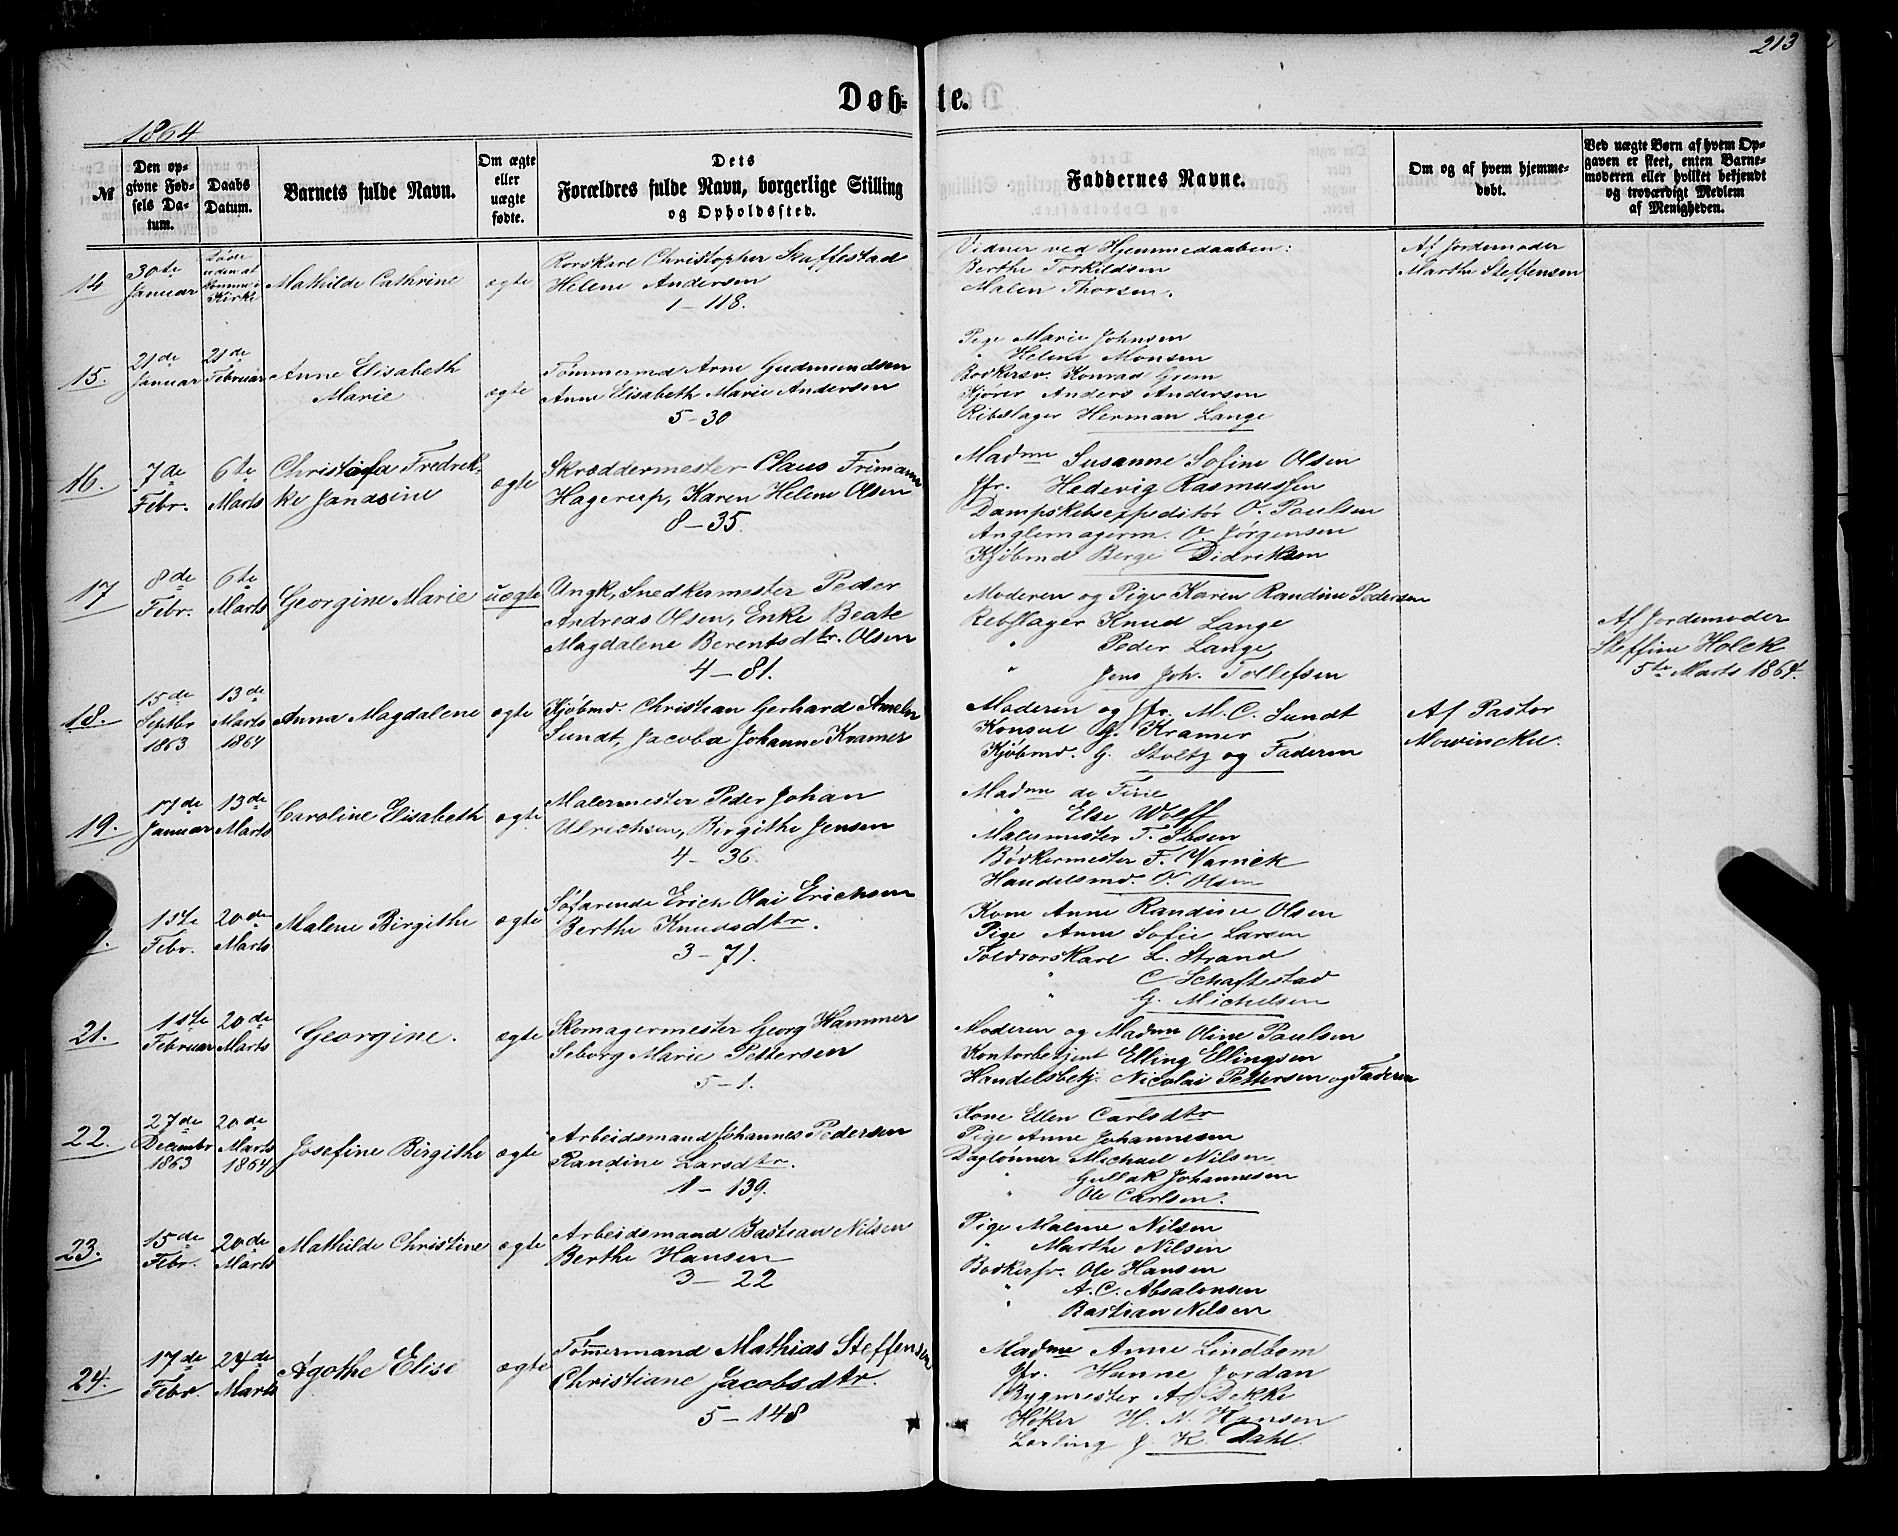 213
Døbte.
1864
№
Den opgivne Fødsels Datum.
Daabs Datum.
Barnets fulde Navn.
Om ægte eller uægte fødte.
Dets
Forældres fulde Navn, borgerlige Stilling
og Opholdssted.
Faddernes Navne.
Om og af hvem hjemmedøbt.
Ved uægte Børn af hvem Opgaven er skeet, enten Barnemoderen eller hvilket bekjendt og troværdigt Medlem af Menigheden.
14
30te Januar
Døde uden at komme i Kirke
Mathilde Cathrine
ægte
Rorskarl Christopher Skaffestad
Helene Andersen
1-118.
Vidner ved Hjemmedaaben:
Berthe Torkildsen
Malen Thorsen.
Af Jordemoder
Marthe Steffensen
15.
21de Januar
21de Februar
Anne Elisabeth
Marie
ægte
Tømmermd Arne Gudmundsen
Anne Elisabeth Marie Andersen
5-30
Pige Marie Johnsen
" Helene Monsen
Bødkersv. Konrad Grem
Kjører Anders Andersen
Ribslager Herman Lange
16.
7de Febr.
6te Marts
Christiofa Fredrik-
ke Jansine
ægte
Skræddermester Claus Frimann
Hagerup, Karen Helene Olsen
8-35.
Madme Susanne Sofine Olsen
Jfr. Hedevig Rasmussen
Dampskibsexpeditør O. Paulsen
Anglemagerm. O. Jørgensen
Kjøbmd Berge Didriksen
17
8de Febr.
6te Marts
Georgine Marie
uægte
Ungk, Snedkermester Peder
Andreas Olsen, Enke Beate
Magdalene Berentsdtr. Olsen
4-81.
Moderen og Pige Karen Randine Pedersen
Rebslager Knud Lange
" Peder Lange
" Jens Joh. Tollefsen
Af Jordemoder
Steffine Holck
5te Marts 1864.
18.
15de Septbr 1863
13de Marts 1864
Anna Magdalene
ægte
Kjøbmd. Christian Gerhard Ameln
Sundt, Jacoba Johanne Kramer
Moderen og Jfr. M. C. Sundt
Konsul G. Kramer
Kjøbmd. G. Stoltz og Faderen
Af Pastor
Mowinckel.
19.
17de Januar
13de Marts
Caroline Elisabeth
ægte
Malermester Peder Johan
Ulrichsen, Birgithe Jensen
4-36.
Madme de Fine
" Else Wolff
Malermester T. Ibsen
Bødkermester F. Warnick
Handelsmd. O. Olsen
1ste Febr.
20de Marts
Malene Birgithe
ægte
Søfarende Erich Olai Erichsen
Berthe Knudsdtr.
3-71.
Kone Anne Randine Olsen
Pige Anne Sofie Larsen
Toldrorskarl L. Strand
C Schaftestad
" G. Michelsen
21.
1ste Februar
20de Marts
Georgine.
ægte
Skomagermester Georg Hammer
Seborg Marie Pettersen
5-1.
Moderen og Madme Oline Paulsen
Kontorbetjent Elling Ellingsen
Handelsbetj. Nicolai Pettersen og Faderen
22.
27de Decembr 1863
20de Marts 1864
Josefine Birgithe
ægte
Arbeidsmand Johannes Pedersen
Randine Larsdtr.
1-139.
Kone Ellen Carlsdtr
Pige Anne Johannesen
Daglønner Michael Nilsen
" Gullak Johannesen
" Ole Carlsen.
23.
15de Febr.
20de Marts
Mathilde Christine
ægte
Arbeidsmand Bastian Nilsen
Berthe Hansen
3-22
Pige Malene Nilsen
" Marthe Nilsen
Bødkersv. Ole Hansen
" A. C. Absalonsen
" Bastian Nilsen
24.
17de Febr.
24de Marts
Agothe Elise
ægte
Tømmermand Mathias Steffensen
Christiane Jacobsdtr.
5-148
Madme Anne Lindbom
Jfr. Hanne Jordan
Bygmester A. Dekke
Høker H. N. Hansen
Lærling J. K. Dahl.